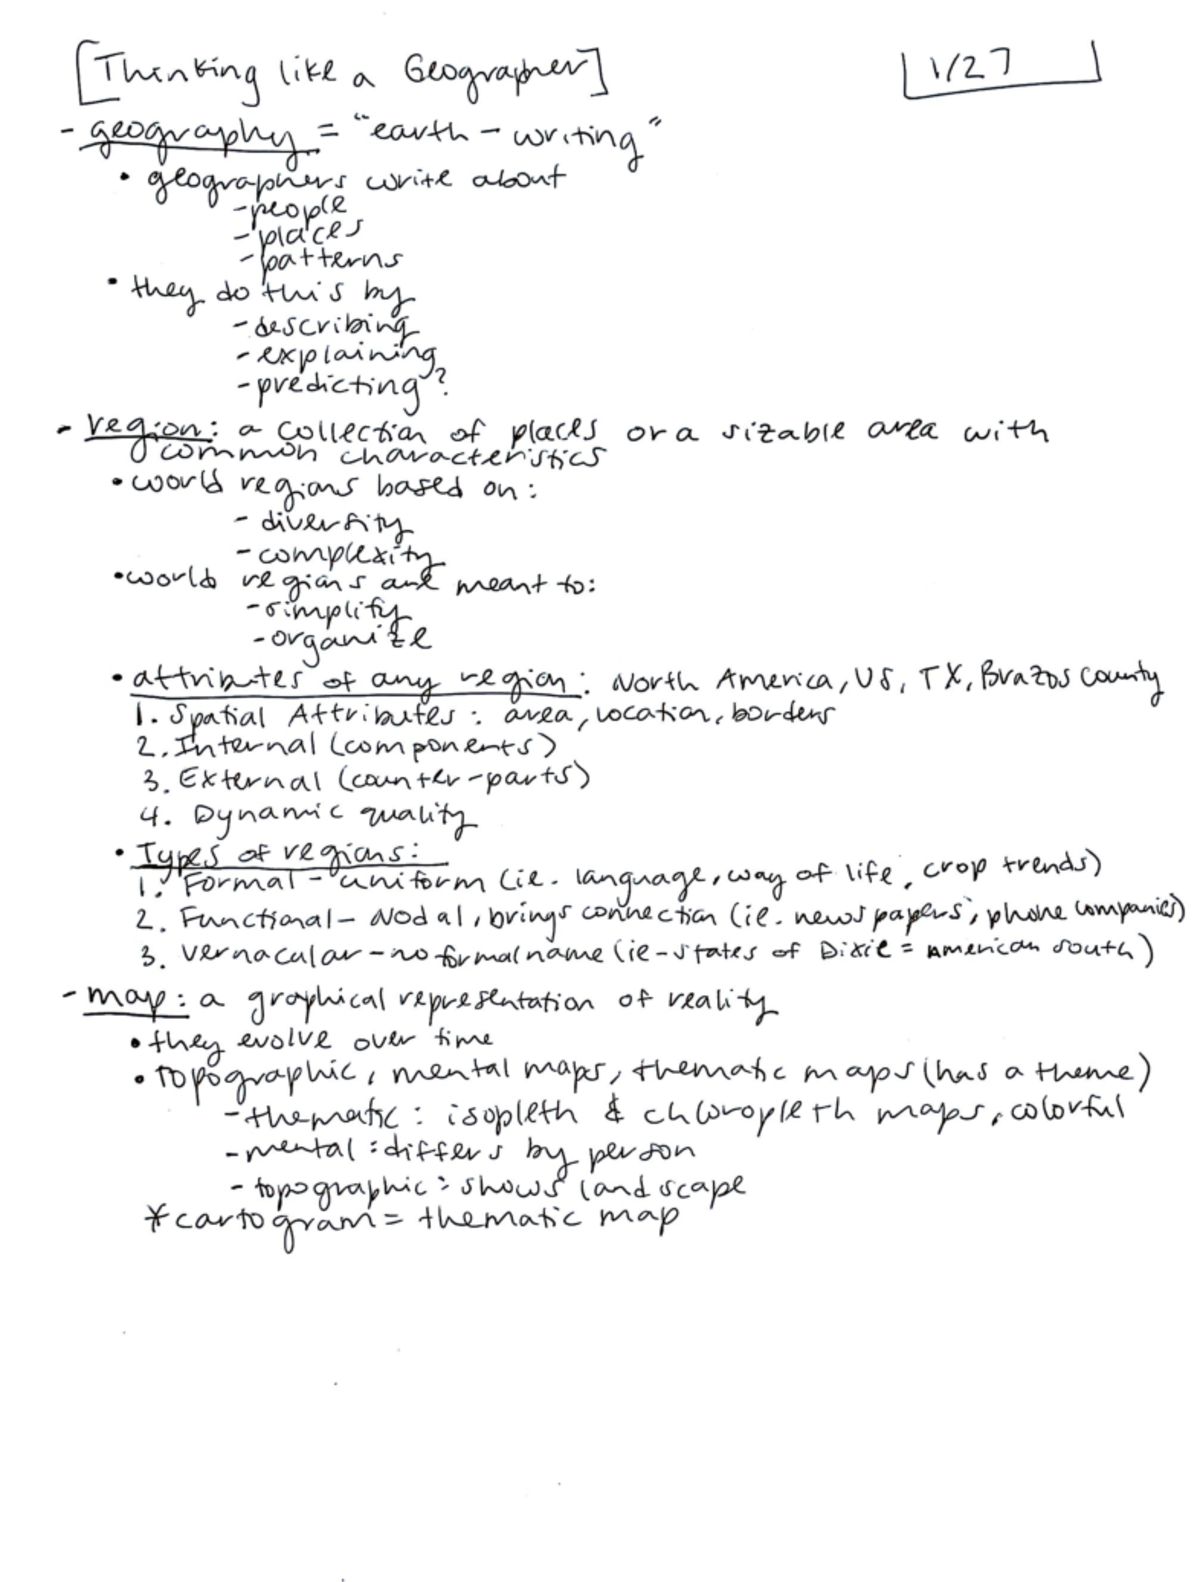 [Thinking like a Geographer]
1/27
- geography = "earth-writing"
• geographers write about
- people
- places
- patterns
• they do this by
- describing
- explaining
- predicting?
- region: a collection of places or a sizable area with
common characteristics
• world regions based on:
- diversity
- complexity
• world regions are meant to:
- simplify
- organize
• attributes of any region: North America, US, TX, Brazos County
1. Spatial Attributes: area, location, borders
2. Internal (components)
3. External (counter-parts)
4. Dynamic quality
• Types of regions:
1. Formal - uniform (ie. language, way of life, crop trends)
2. Functional - Nodal, brings connection (ie. newspapers, phone companies)
3. Vernacular - no formal name (ie - states of Dixie = American South)
- map: a graphical representation of reality
• they evolve over time
• topographic, mental maps, thematic maps (has a theme)
- thematic: isopleth & chloropleth maps, colorful
- mental: differs by person
- topographic: shows landscape
* cartogram = thematic map